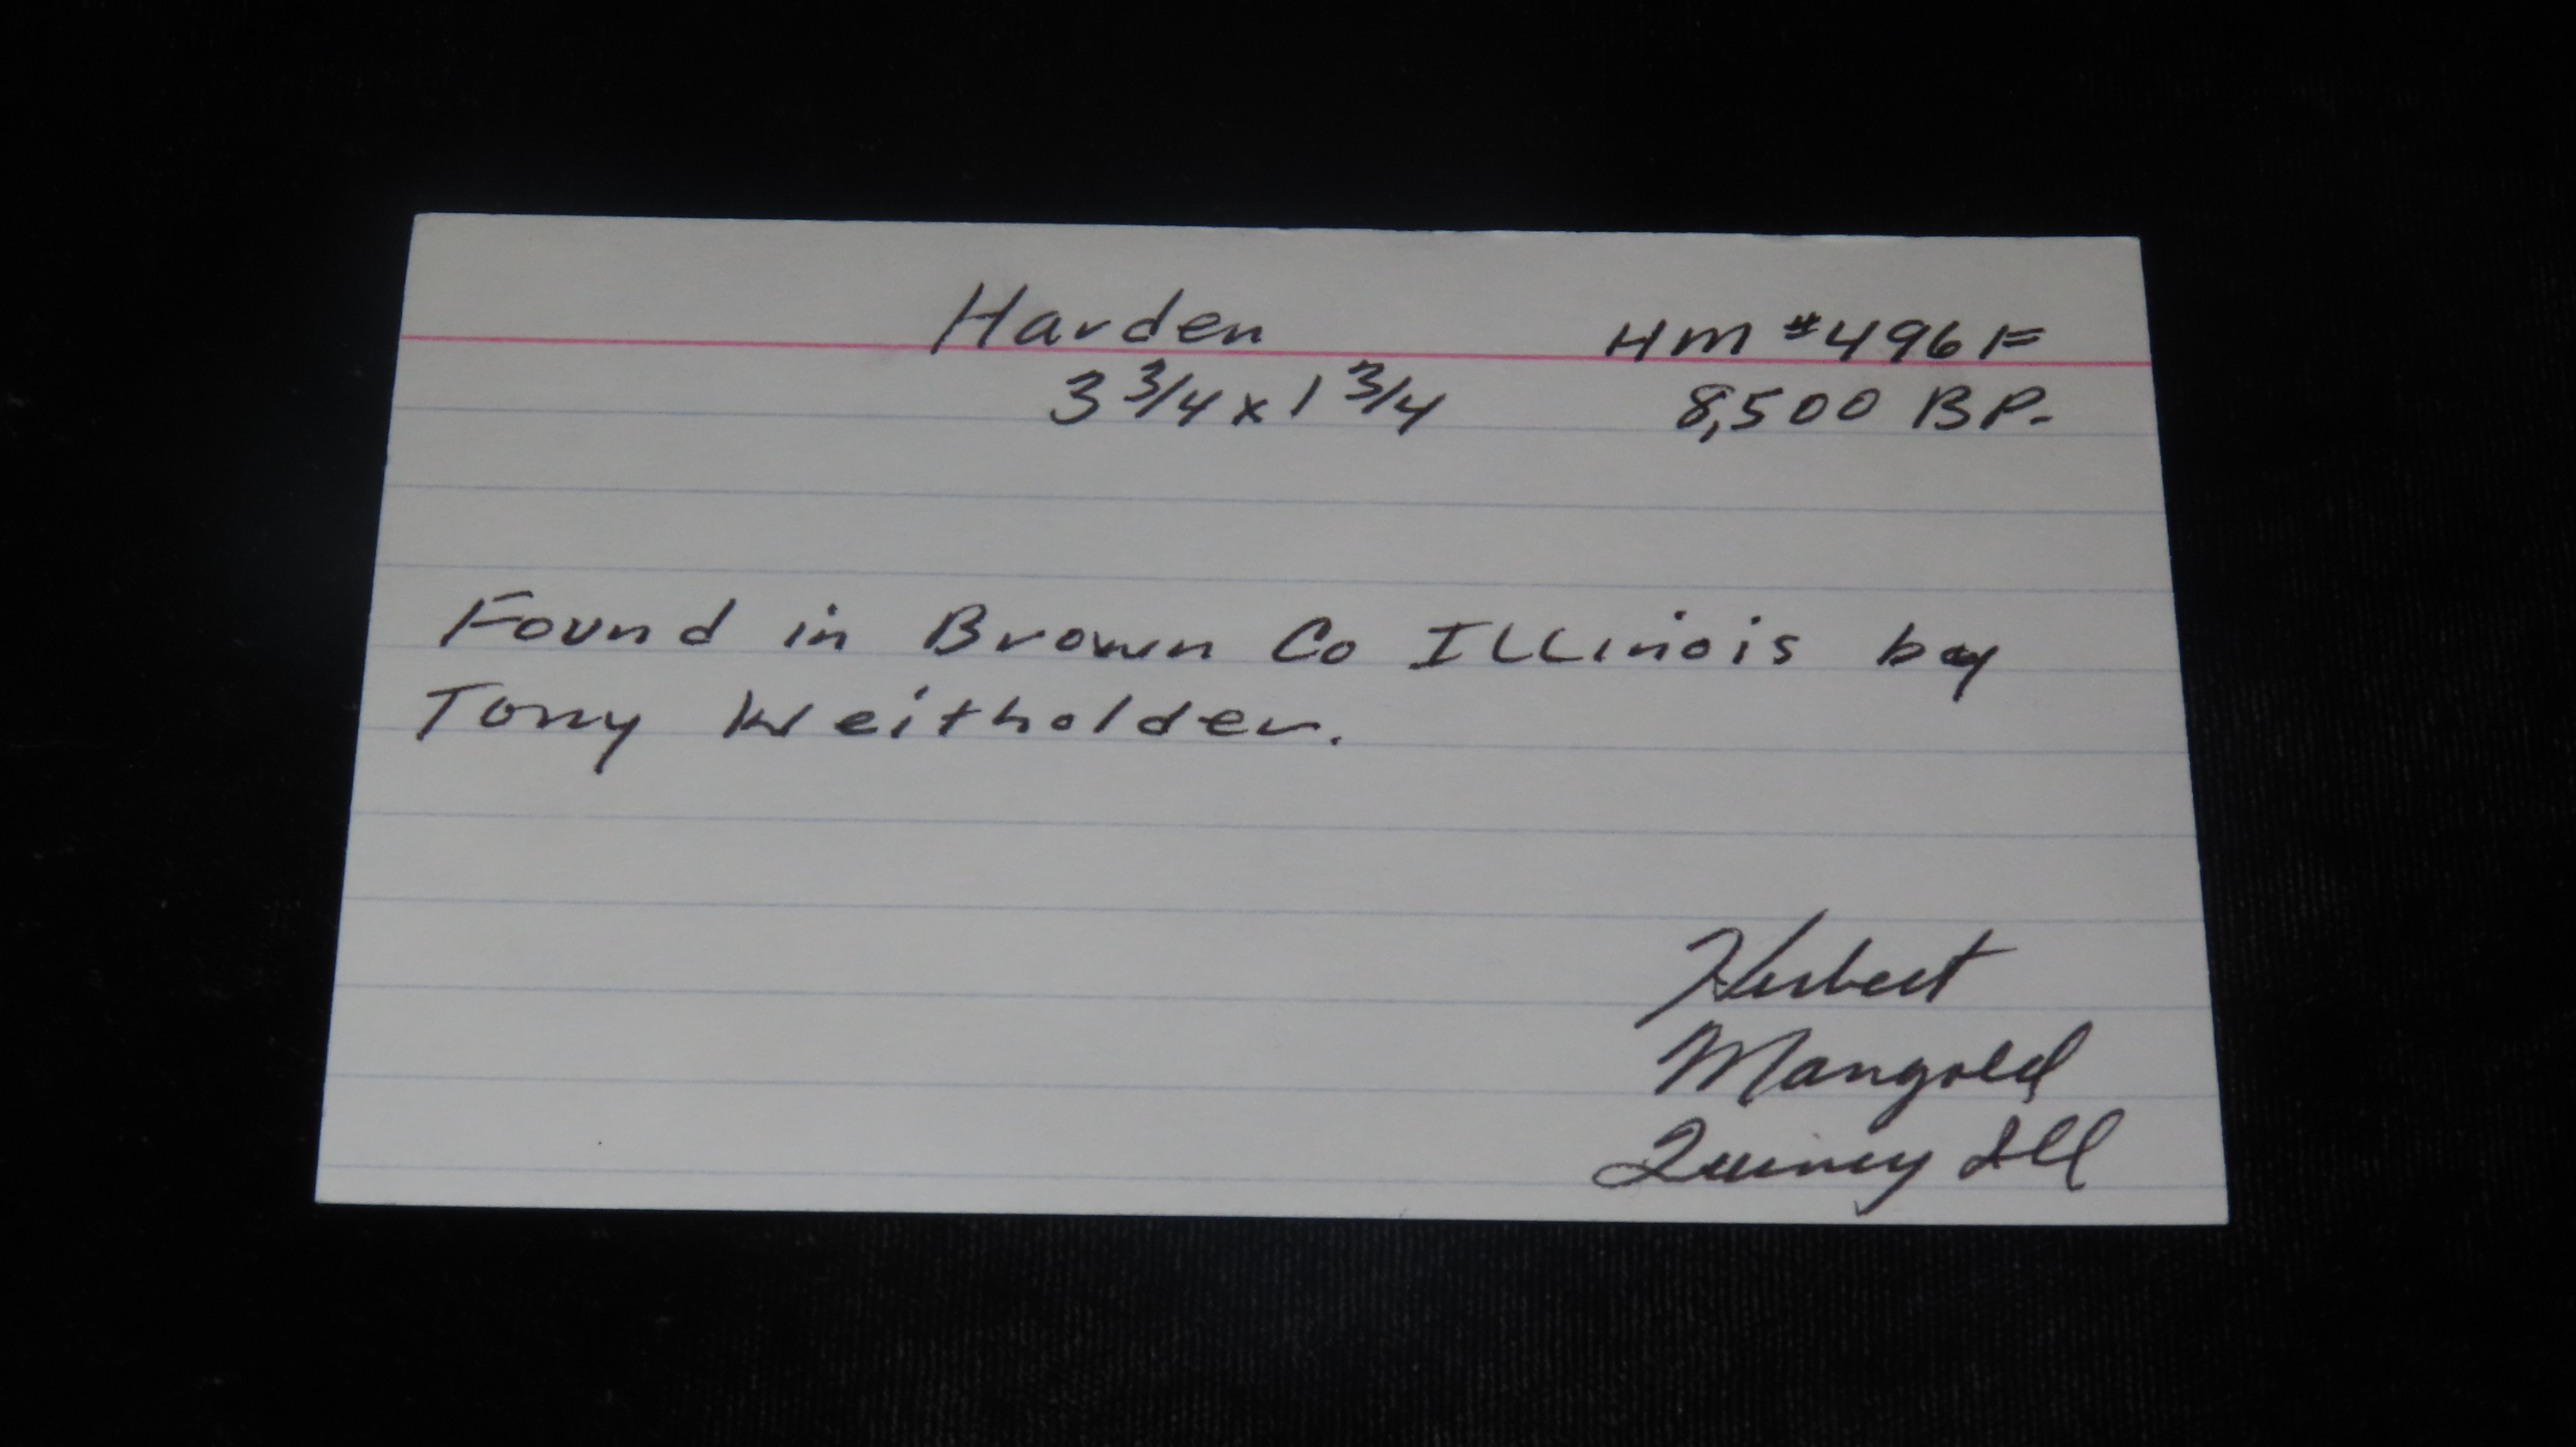 Harden HM #496F
3 3/4 x 1 3/4 8,500 BP.
Found in Brown Co ILLinois by
Tony Weitholder.
Herbert
Mangold
Quincy Ill